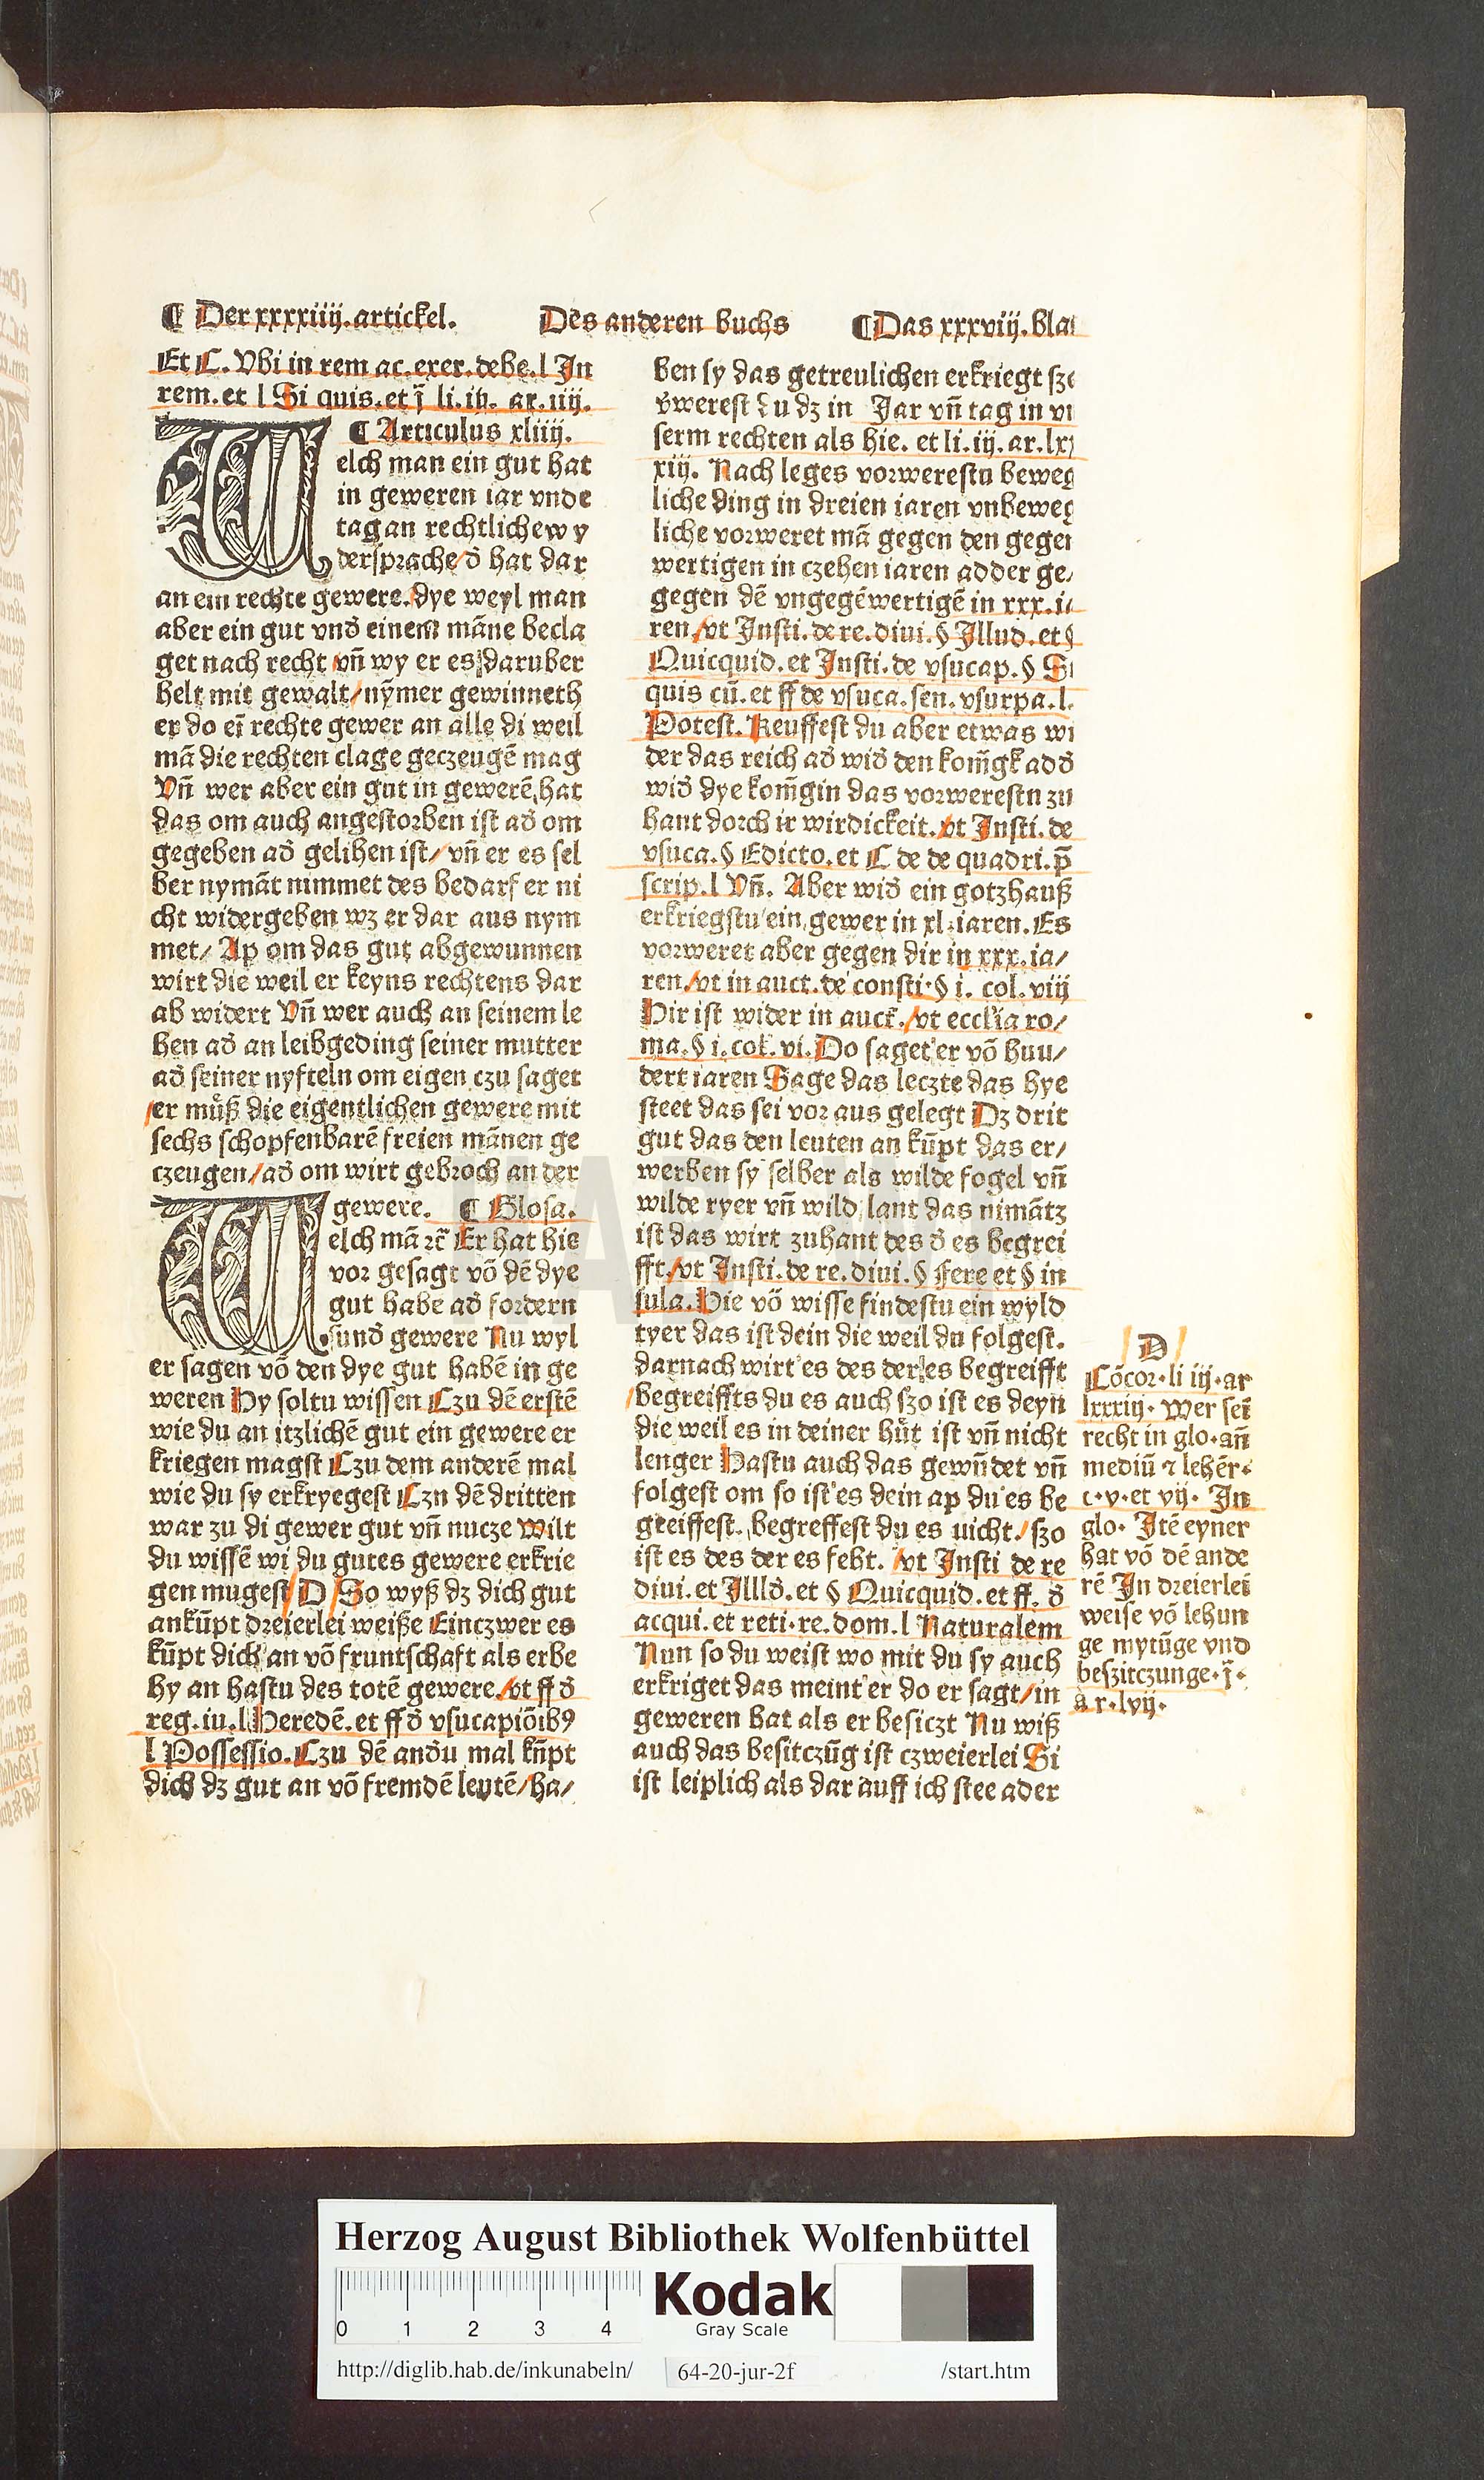 ¶ Der xxxxiiij. artickel. Des anderen buchs ¶ Das xxxviij. bla
Et C. Vbi in rem ac. exer. debe. l In
rem. et l Si quis. et j̄ li. iij. ar. iiij.
¶ Articulus xliiij.
Welch man ein gut hat
in geweren iar vnde
tag an rechtliche wy
dersprache/ð hat dar
an ein rechte gewere. dye weyl man
aber ein gut vnð einem māne becla
get nach recht vn̄ wy er es daruber
helt mit gewalt/nȳmer gewinneth
er do eī rechte gewer an alle di weil
mā die rechten clage geczeugē mag
Vn̄ wer aber ein gut in gewerē hat
das om auch angestorben ist að om
gegeben að gelihen ist/ vn̄ er es sel
ber nymāt nimmet des bedarf er ni
cht widergeben wz er dar aus nym
met/ Ap om das gut abgewunnen
wirt die weil er keyns rechtens dar
ab widert Vn̄ wer auch an seinem le
hen að an leibgeding seiner mutter
að seiner nyfteln om eigen czu saget
/er muß die eigentlichen gewere mit
sechs schopfenbarē freien mānen ge
czeugen/að om wirt gebroch an der
gewere. ¶ Glosa.
Welch mā ꝛc̄ Er hat hie
vor gesagt vō dē dye
gut habe að fordern
sunð gewere Nu wyl
er sagen vō den dye gut habē in ge
weren Hy soltu wissen Czu dē erstē
wie du an itzlichē gut ein gewere er
kriegen magst Czu dem anderē mal
wie du sy erkryegest Czn dē dritten
war zu di gewer gut vn̄ nucze Wilt
du wissē wi du gutes gewere erkrie
gen mugest/D/So wyß dz dich gut
ankūpt dreierlei weiße Eintzwer es
kūpt dich an vō fruntschaft als erbe
hy an hastu des totē gewere./vt ff ð
reg. iu. l Heredē. et ff ð vsucapiōib9
l Possessio. Czu dē anðu mal kūpt
dich dz gut an vō fremdē leutē/ha/
ben sy das getreulichen erkriegt sze
vwerest du dz in Jar vn̄ tag in vn
serm rechten als hie. et li. iij. ar. lxx
xiij. Nach leges vorwerestu beweg
liche ding in dreien iaren vnbeweg
liche vorweret mā gegen den gegen
wertigen in czehen iaren adder ge/
gegen dē vngegēwertigē in xxx. ia
ren/vt Insti. de re. diui. § Illud. et §
Quicquid. et Insti. de vsucap. § Si
quis cū. et ff de vsuca. sen. vsurpa. l.
Potest. Keuffest du aber etwas wi
der das reich að wið den kom̄gk adð
wið dye kom̄gin das vorwerestn zu
hant dorch ir wirdickeit./vt Insti. de
vsuca. § Edicto. et C de de quadri. p̄
scrip. l Vn̄. Aber wið ein gotzhauß
erkriegstu ein gewer in xl. iaren. Es
vorweret aber gegen dir in xxx. ia/
ren/vt in auct. de consti. § i. col. viij
Hir ist wider in auct./vt ecclīa ro/
ma. § i. col. vi. Do saget er vō huu/
dert iaren Sage das leczte das hye
steet das sei vor aus gelegt Dz drit
gut das den leuten an kūpt das er/
werben sy selber als wilde fogel vn̄
wilde ryer vn̄ wild lant das nimātz
ist das wirt zuhant des ð es begrei
fft/vt Insti. de re. diui. § Fere et § in
sula. Hie vō wisse findestu ein wyld
tyer das ist dein die weil du folgest.
darnach wirt es des der es begreifft
/begreiffts du es auch szo ist es deyn
die weil es in deiner hut ist vn̄ nicht
lenger Hastu auch das gewūdet vn̄
folgest om so ist es dein ap du es be
greiffest. begreffest du es uicht./szo
ist es des der es feht. /vt Insti de re
diui. et Illlð. et § Quicquid. et ff. ð
acqui. et reti. re. dom. l Naturalem
Nun so du weist wo mit du sy auch
erkriget das meint er do er sagt/in
geweren hat als er besiczt Nu wiß
auch das besitczūg ist czweierlei Si
ist leiplich als dar auff ich stee ader
/D/
Cōcor. li iij. ar
lxxxiij. Wer seī
recht in glo. an̄
mediū ⁊ lehēr.
c. v. et vij. In
glo. Itē eyner
hat vō dē ande
rē In dreierlei
weise vō lehun
ge mytūge vnd
beszitczunge. j̄.
ar. lvij.
HAB WF
Herzog August Bibliothek Wolfenbüttel
0 1 2 3 4
Kodak
Gray Scale
http://diglib.hab.de/inkunabeln/ 64-20-jur-2f /start.htm